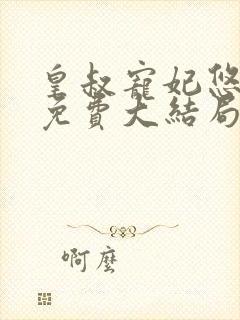 皇叔寵妃悠
免費大結局
啊麼